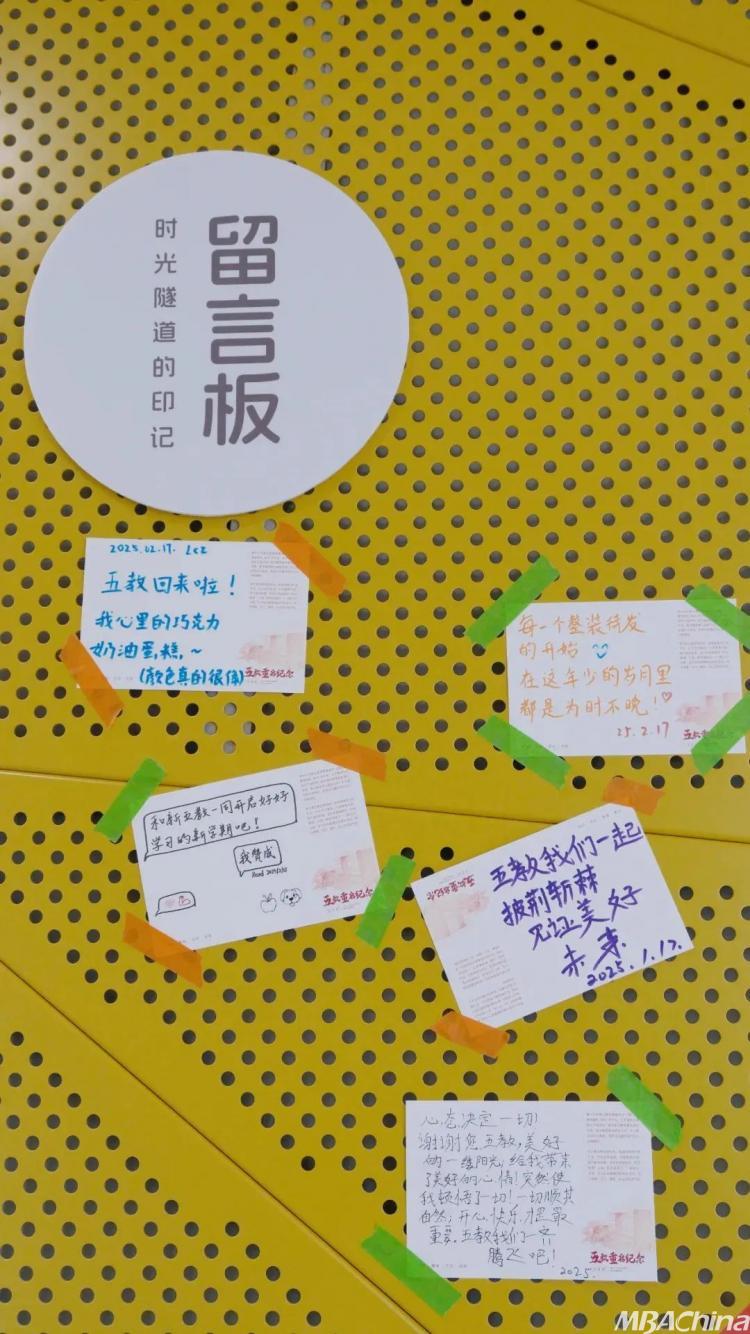 留言板
时光隧道的印记
2025.02.17. Lcz
五教回来啦！
我心里的巧克力
奶油蛋糕.~
(颜色真的很像)
五教重启纪念
每一个整装待发
的开始
在这年少的岁月里
都是为时不晚！
25.2.17
五教重启纪念
和新五教一同开启好好
学习的新学期吧！
我赞成
五教重启纪念
五教重启纪念
五教我们一起
披荆斩棘
见证美好
未来
2025.1.17.
心态决定一切!
谢谢您五教,美好
的一缕阳光,给我带来
了美好的心情!突然使
我顿悟了一切!一切顺其
自然,开心、快乐才是最
重要.五教我们一齐
腾飞吧!
2025.
五教重启纪念
MBAChina